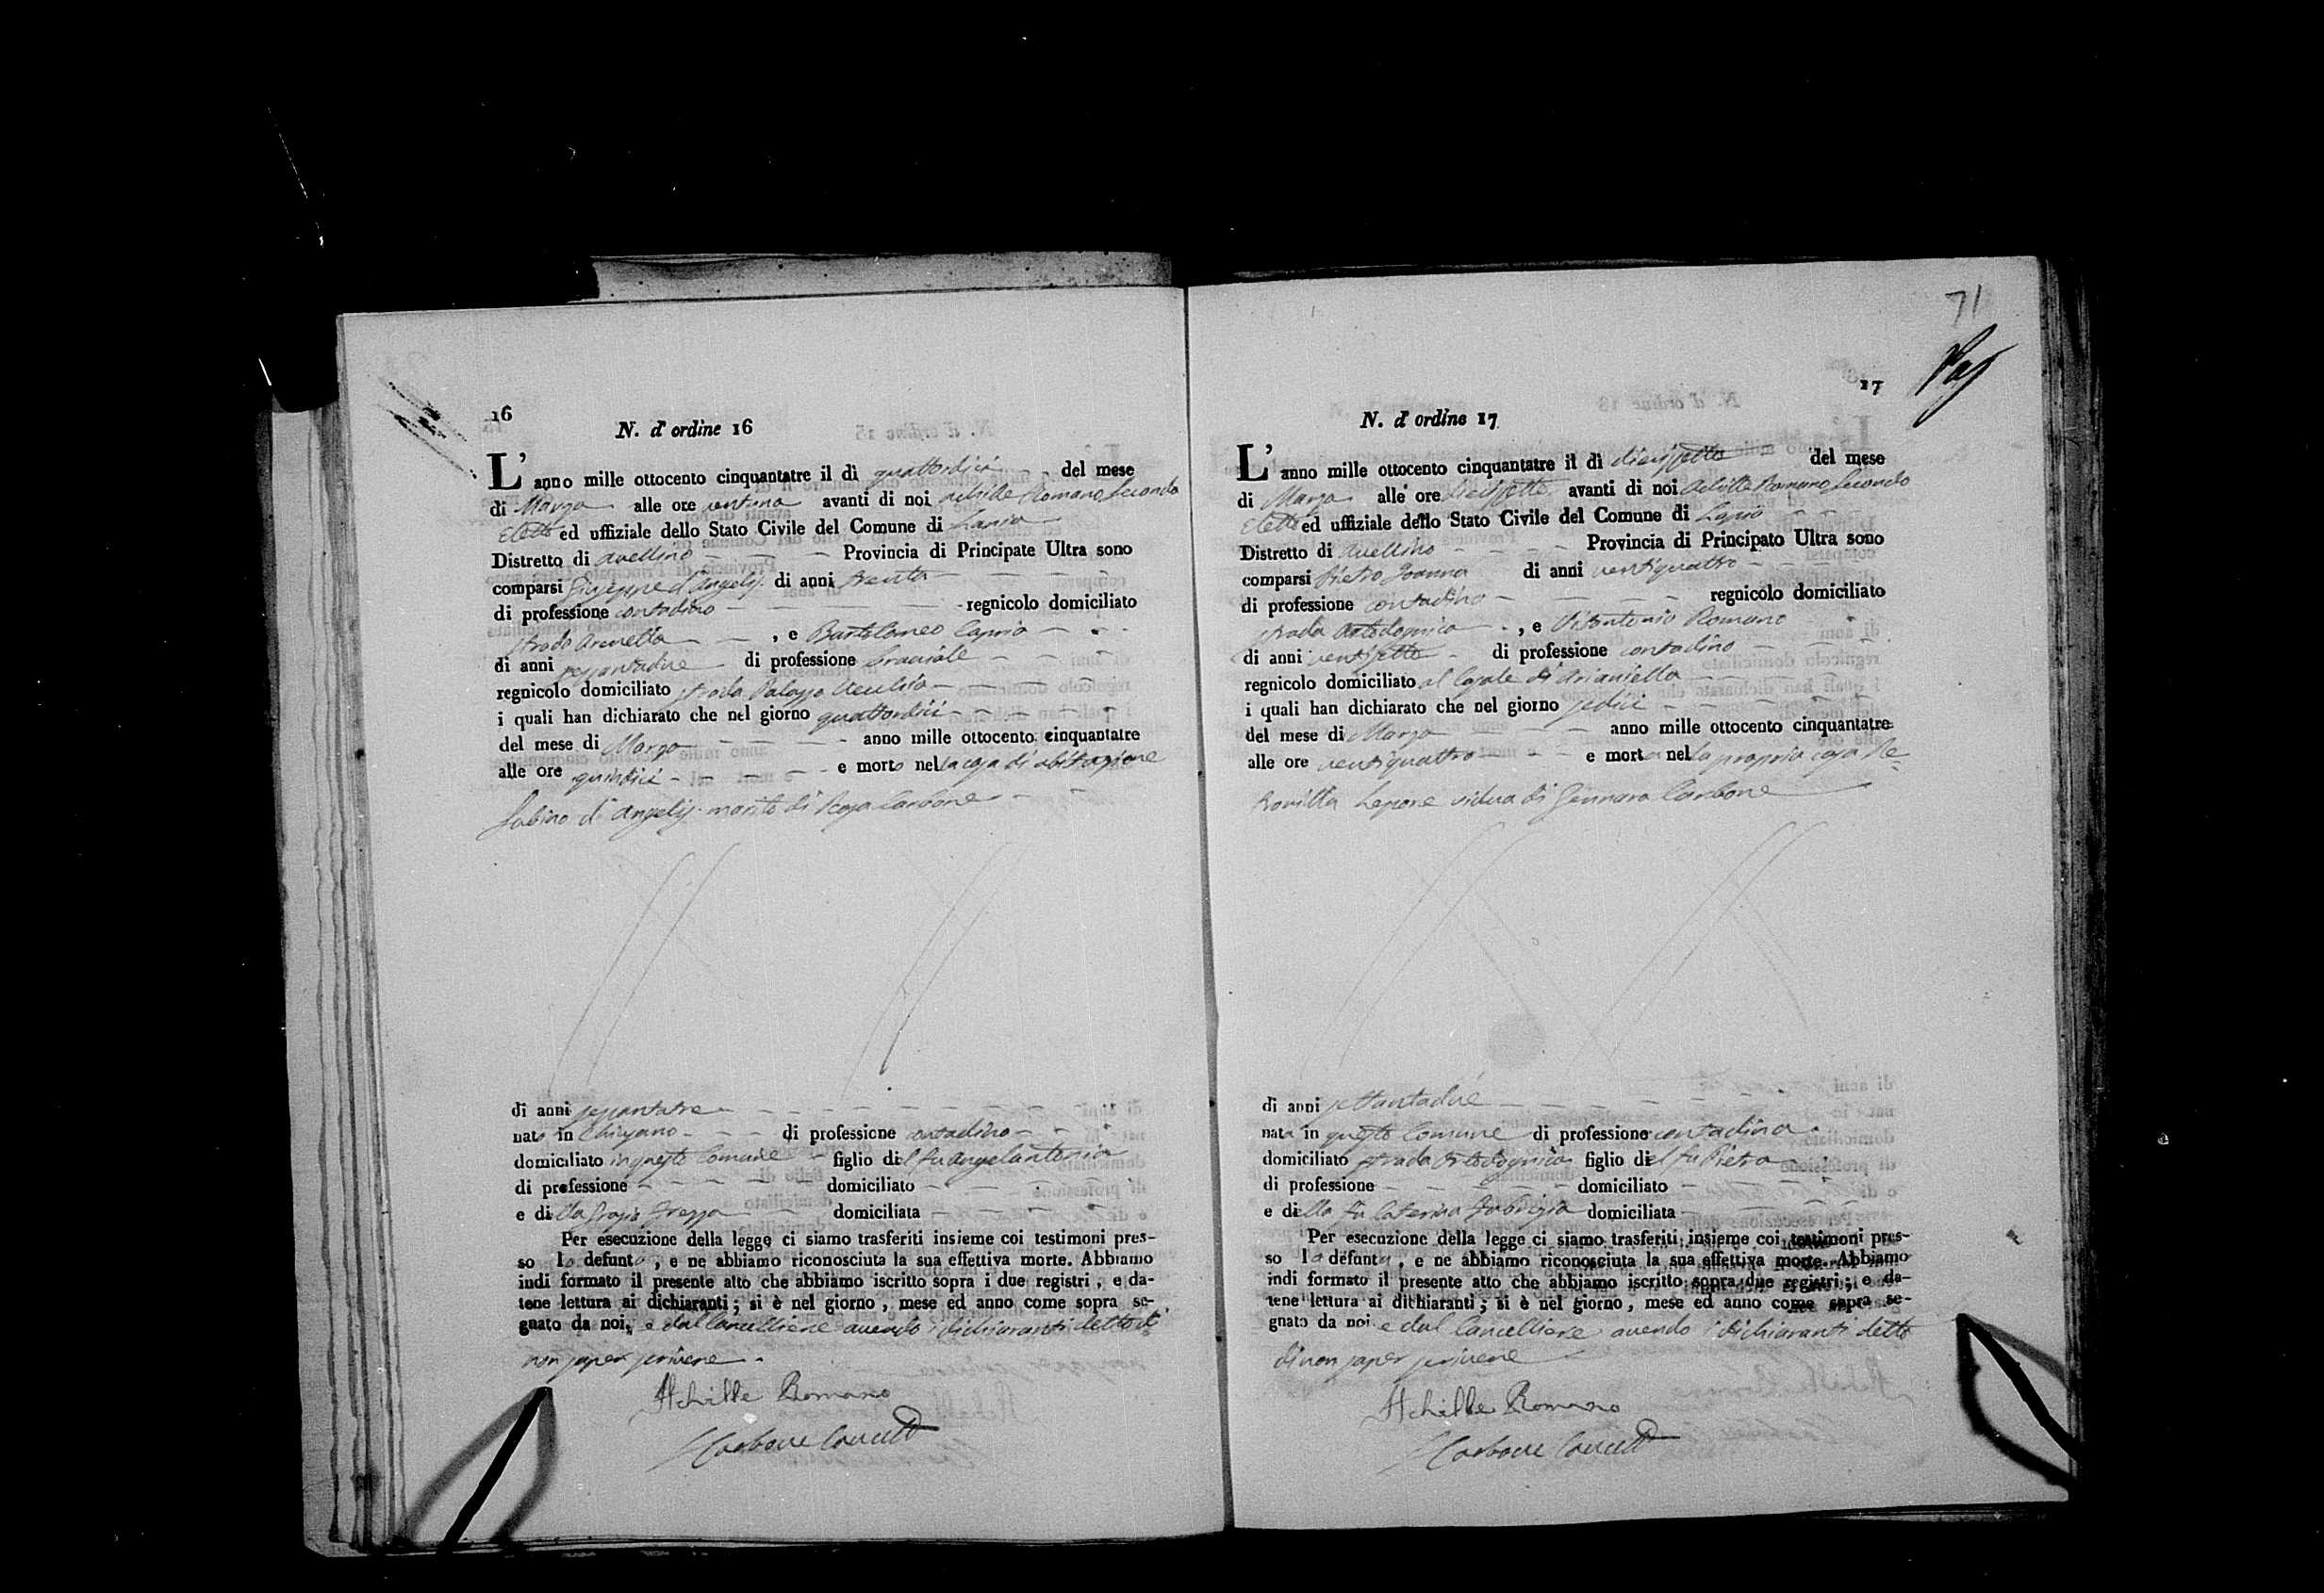 16
N. d' ordine 16
L' anno mille ottocento cinquantatre il dì quattordici del mese
di Marzo alle ore ventuna avanti di noi Achille Romano Secondo
Eletto ed uffiziale dello Stato Civile del Comune di Lapio
Distretto di Avellino Provincia di Principate Ultra sono
comparsi Giuseppe d'Angelis di anni trenta
di professione contadino regnicolo domiciliato
strada , e Bartolomeo Caprio
di anni sessantadue di professione bracciale
regnicolo domiciliato strada Palazzo Vecchio
i quali han dichiarato che nel giorno quattordici
del mese di Marzo anno mille ottocento cinquantatre
alle ore quindici e morto nella casa di abitazione
Sabino d'Angelis marito di Rosa Carbone
di anni sessantatre
nato in Chiusano di professione contadino
domiciliato in questo Comune figlio del fu Angelantonio
di professione domiciliato
e della Grazia domiciliata
Per esecuzione della legge ci siamo trasferiti insieme coi testimoni pres-
so lo defunto , e ne abbiamo riconosciuta la sua effettiva morte. Abbiamo
indi formato il presente atto che abbiamo iscritto sopra i due registri , e da-
tone lettura ai dichiaranti ; si è nel giorno , mese ed anno come sopra se-
gnato da noi, e dal Cancelliere avendo i dichiaranti detto di
non saper scrivere
Achille Romano
Carbone Cancell
71
17
N. d' ordine 17
L' anno mille ottocento cinquantatre il dì diecissette del mese
di Marzo alle ore diecissette avanti di noi Achille Romano Secondo
Eletto ed uffiziale dello Stato Civile del Comune di Lapio
Distretto di Avellino Provincia di Principato Ultra sono
comparsi Pietro Ioanna di anni ventiquattro
di professione contadino regnicolo domiciliato
strada , e Vitantonio Romano
di anni ventisette di professione contadino
regnicolo domiciliato al Casale di Arianiello
i quali han dichiarato che nel giorno sedici
del mese di Marzo anno mille ottocento cinquantatre
alle ore ventiquattro e morta nella propria casa Pe-
tronilla Lepore vidua di Gennaro Carbone
di anni settantadue
nata in questo Comune di professione contadina
domiciliato strada figlio del fu Pietro
di professione domiciliato
e della fu Caterina domiciliata
Per esecuzione della legge ci siamo trasferiti insieme coi testimoni pres-
so la defunta , e ne abbiamo riconosciuta la sua effettiva morte. Abbiamo
indi formato il presente atto che abbiamo iscritto sopra due registri ; e da-
tene lettura ai dichiaranti ; si è nel giorno , mese ed anno come sopra se-
gnato da noi e dal Cancelliere avendo i dichiaranti detto
di non saper scrivere
Achille Romano
Carbone Cancell